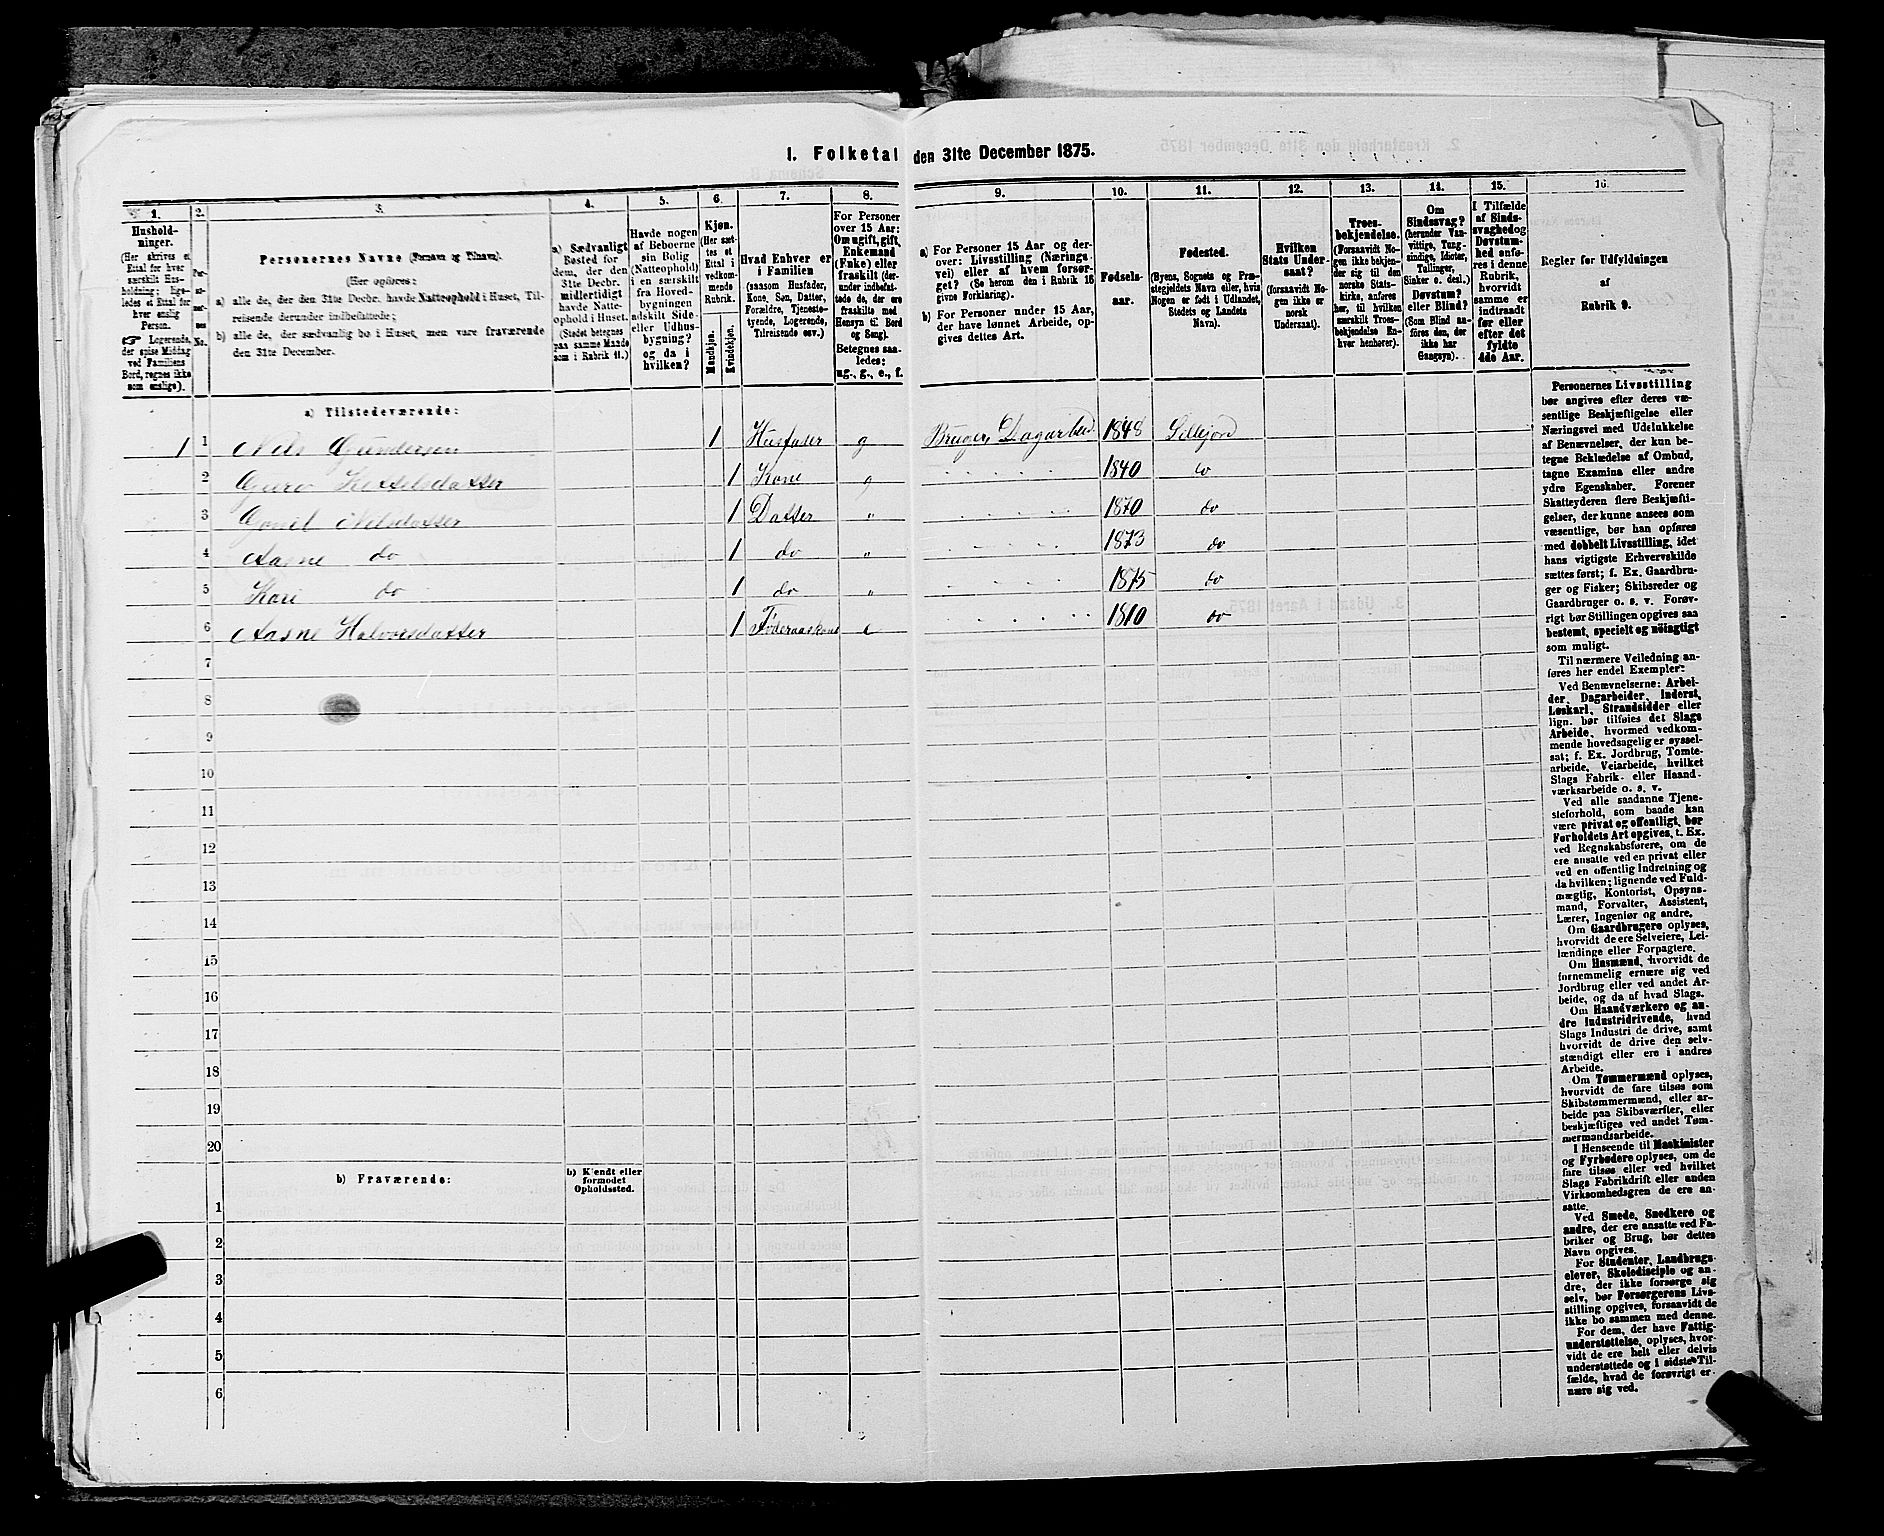 I. Folketal den 31te December 1875.
1.
Husholdninger.
(Her skrives et Ettal for hver særskilt Husholdning; ligeledes et Ettal for hver enslig Person.
☞ Logerende, der spise Middag ved Familiens Bord, regnes ikke som enslige).
2.
Personernes No.
3.
Personernes Navne (Fornavn og Tilnavn).
(Her opføres:
a) alle de, der den 31te Decbr. havde Natteophold i Huset, Tilreisende derunder indbefattede;
b) alle de, der sædvanlig bo i Huset, men vare fraværende den 31te December.
4.
a) Sædvanligt Bosted for dem, der den 31te Decbr. midlertidigt havde Natteophold i Huset.
(Stedet betegnes paa samme Maade som i Rubrik 11.)
5.
Havde nogen af Beboerne sin Bolig (Natteophold) i en særskilt fra Hovedbygningen adskilt Side- eller Udhusbygning? og da i hvilken?
6.
Kjøn.
(Her sættes et Ettal i vedkommende Rubrik.
Mandkjøn.
Kvindekjøn.
7.
Hvad Enhver er i Familien
(saasom Husfader, Kone, Søn, Datter, Forældre, Tjenestetyende, Logerende, Tilreisende osv.)
8.
For Personer over 15 Aar: Om ugift, gift, Enkemand (Enke) eller fraskilt (derunder indbefattede de, der ere fraskilte med Hensyn til Bord og Seng).
Betegnes saaledes: ug., g., e., f.
9.
a) For Personer 15 Aar og derover: Livsstilling (Næringsvei) eller af hvem forsørget? (Se herom den i Rubrik 16 givne Forklaring).
b) For Personer under 15 Aar, der have lønnet Arbeide, opgives dettes Art.
10.
Fødselsaar.
11.
Fødested.
(Byens, Sognets og Præstegjeldets Navn eller, hvis Nogen er født i Udlandet, Stedets og Landets Navn).
12.
Hvilken Stats Undersaat?
(forsaavidt Nogen ikke er norsk Undersaat).
13.
Troesbekjendelse.
(Forsaavidt Nogen ikke bekjender sig til den norske Statskirke, anføres her, til hvilken særskilt Troesbekjendelse Enhver henhører).
14.
Om Sindssvag? (herunder Vanvittige, Tungsindige, Idioter, Tullinger, Sinker o. desl.) Døvstum? eller Blind? (Som Blind anføres den, der ikke har Gangsyn).
15.
I Tilfælde af Sindssvaghed og Døvstumhed anføres i denne Rubrik, hvorvidt samme er indtraadt før eller efter det fyldte 4de Aar.
16.
Regler for Udfyldningen
af
Rubrik 9.
a) Tilstedeværende:
1 1 Nels Gundersen 1 Husfader g Bruger, Dagarbeid. 1848 Sillejord
2 Guro Kittelsdatter 1 Kone g 1840 do
3 Gonil Nelsdatter 1 Datter „ 1870 do
4 Aasne do 1 do „ 1873 do
5 Kari do 1 do „ 1875 do
6 Aasne Halvorsdatter 1 Føderaaskone e 1810 do
7
8
9
10
11
12
13
14
15
16
17
18
19
20
b) Fraværende:
b) Kjendt eller formodet Opholdssted.
1
2
3
4
5
6
Personernes Livsstilling
bør angives efter deres væ-
sentlige Beskjæftigelse eller
Næringsvei med Udelukkelse
af Benævnelser, der kun be-
tegne Beklædelse af Ombud,
tagne Examina eller andre
ydre Egenskaber. Forener
Skatteyderen flere Beskjæfti-
gelser, der kunne ansees som
væsentlige, bør han opføres
med dobbelt Livsstilling, idet
hans vigtigste Erhvervskilde
sættes først; f. Ex. Gaardbru-
ger og Fisker; Skibsreder og
Gaardbruger o. s. v. Forøv-
rigt bør Stillingen opgives saa
bestemt, specielt og nøiagtigt
som muligt.
Til nærmere Veiledning an-
føres her endel Exempler:
Ved Benævnelserne: Arbei-
der, Dagarbeider, Inderst,
Løskarl, Strandsidder eller
lign. bør tilføies det Slags
Arbeide, hvormed vedkom-
mende hovedsagelig er syssel-
sat; f. Ex. Jordbrug, Tomte-
arbeide, Veiarbeide, hvilket
Slags Fabrik- eller Haand-
værksarbeide o. s. v.
Ved alle saadanne Tjene-
steforhold, som baade kan
være privat og offentligt, bør
Forholdets Art opgives, t. Ex.
ved Regnskabsførere, om de
ere ansatte ved en privat eller
ved en offentlig Indretning og
da hvilken; lignende ved Fuld-
mægtig, Kontorist, Opsyns-
mand, Forvalter, Assistent,
Lærer, Ingeniør og andre.
Om Gaardbrugere oplyses,
hvorvidt de ere Selveiere, Lei-
lændinge eller Forpagtere.
Om Husmænd, hvorvidt de
fornemmelig ernære sig ved
Jordbrug eller ved andet Ar-
beide, og da af hvad Slags.
Om Haandværkere og an-
dre Industridrivende, hvad
Slags Industri de drive, samt
hvorvidt de drive den selv-
stændigt eller ere i andres
Arbeide.
Om Tømmermænd oplyses,
hvorvidt de fare tilsøs som
Skibstømmermænd, eller ar-
beide paa Skibsværfter, eller
beskjæftiges ved andet Tøm-
mermandsarbeide.
I Henseende til Maskinister
og Fyrbødere oplyses, om de
fare tilsøs eller ved hvilket
Slags Fabrikdrift eller anden
Virksomhedsgren de ere an-
satte.
Ved Smede, Snedkere og
andre, der ere ansatte ved Fa-
briker og Brug, bør dettes
Navn opgives.
For Studenter, Landbrugs-
elever, Skoledisciple og an-
dre, der ikke forsørge sig
selv, bør Forsørgerens Livs-
stilling opgives, forsaavidt de
ikke bo sammen med denne.
For dem, der have Fattig-
understøttelse, oplyses, hvor-
vidt de ere helt eller delvis
understøttede og i sidste Til-
fælde, hvad de forøvrigt er-
nære sig ved.